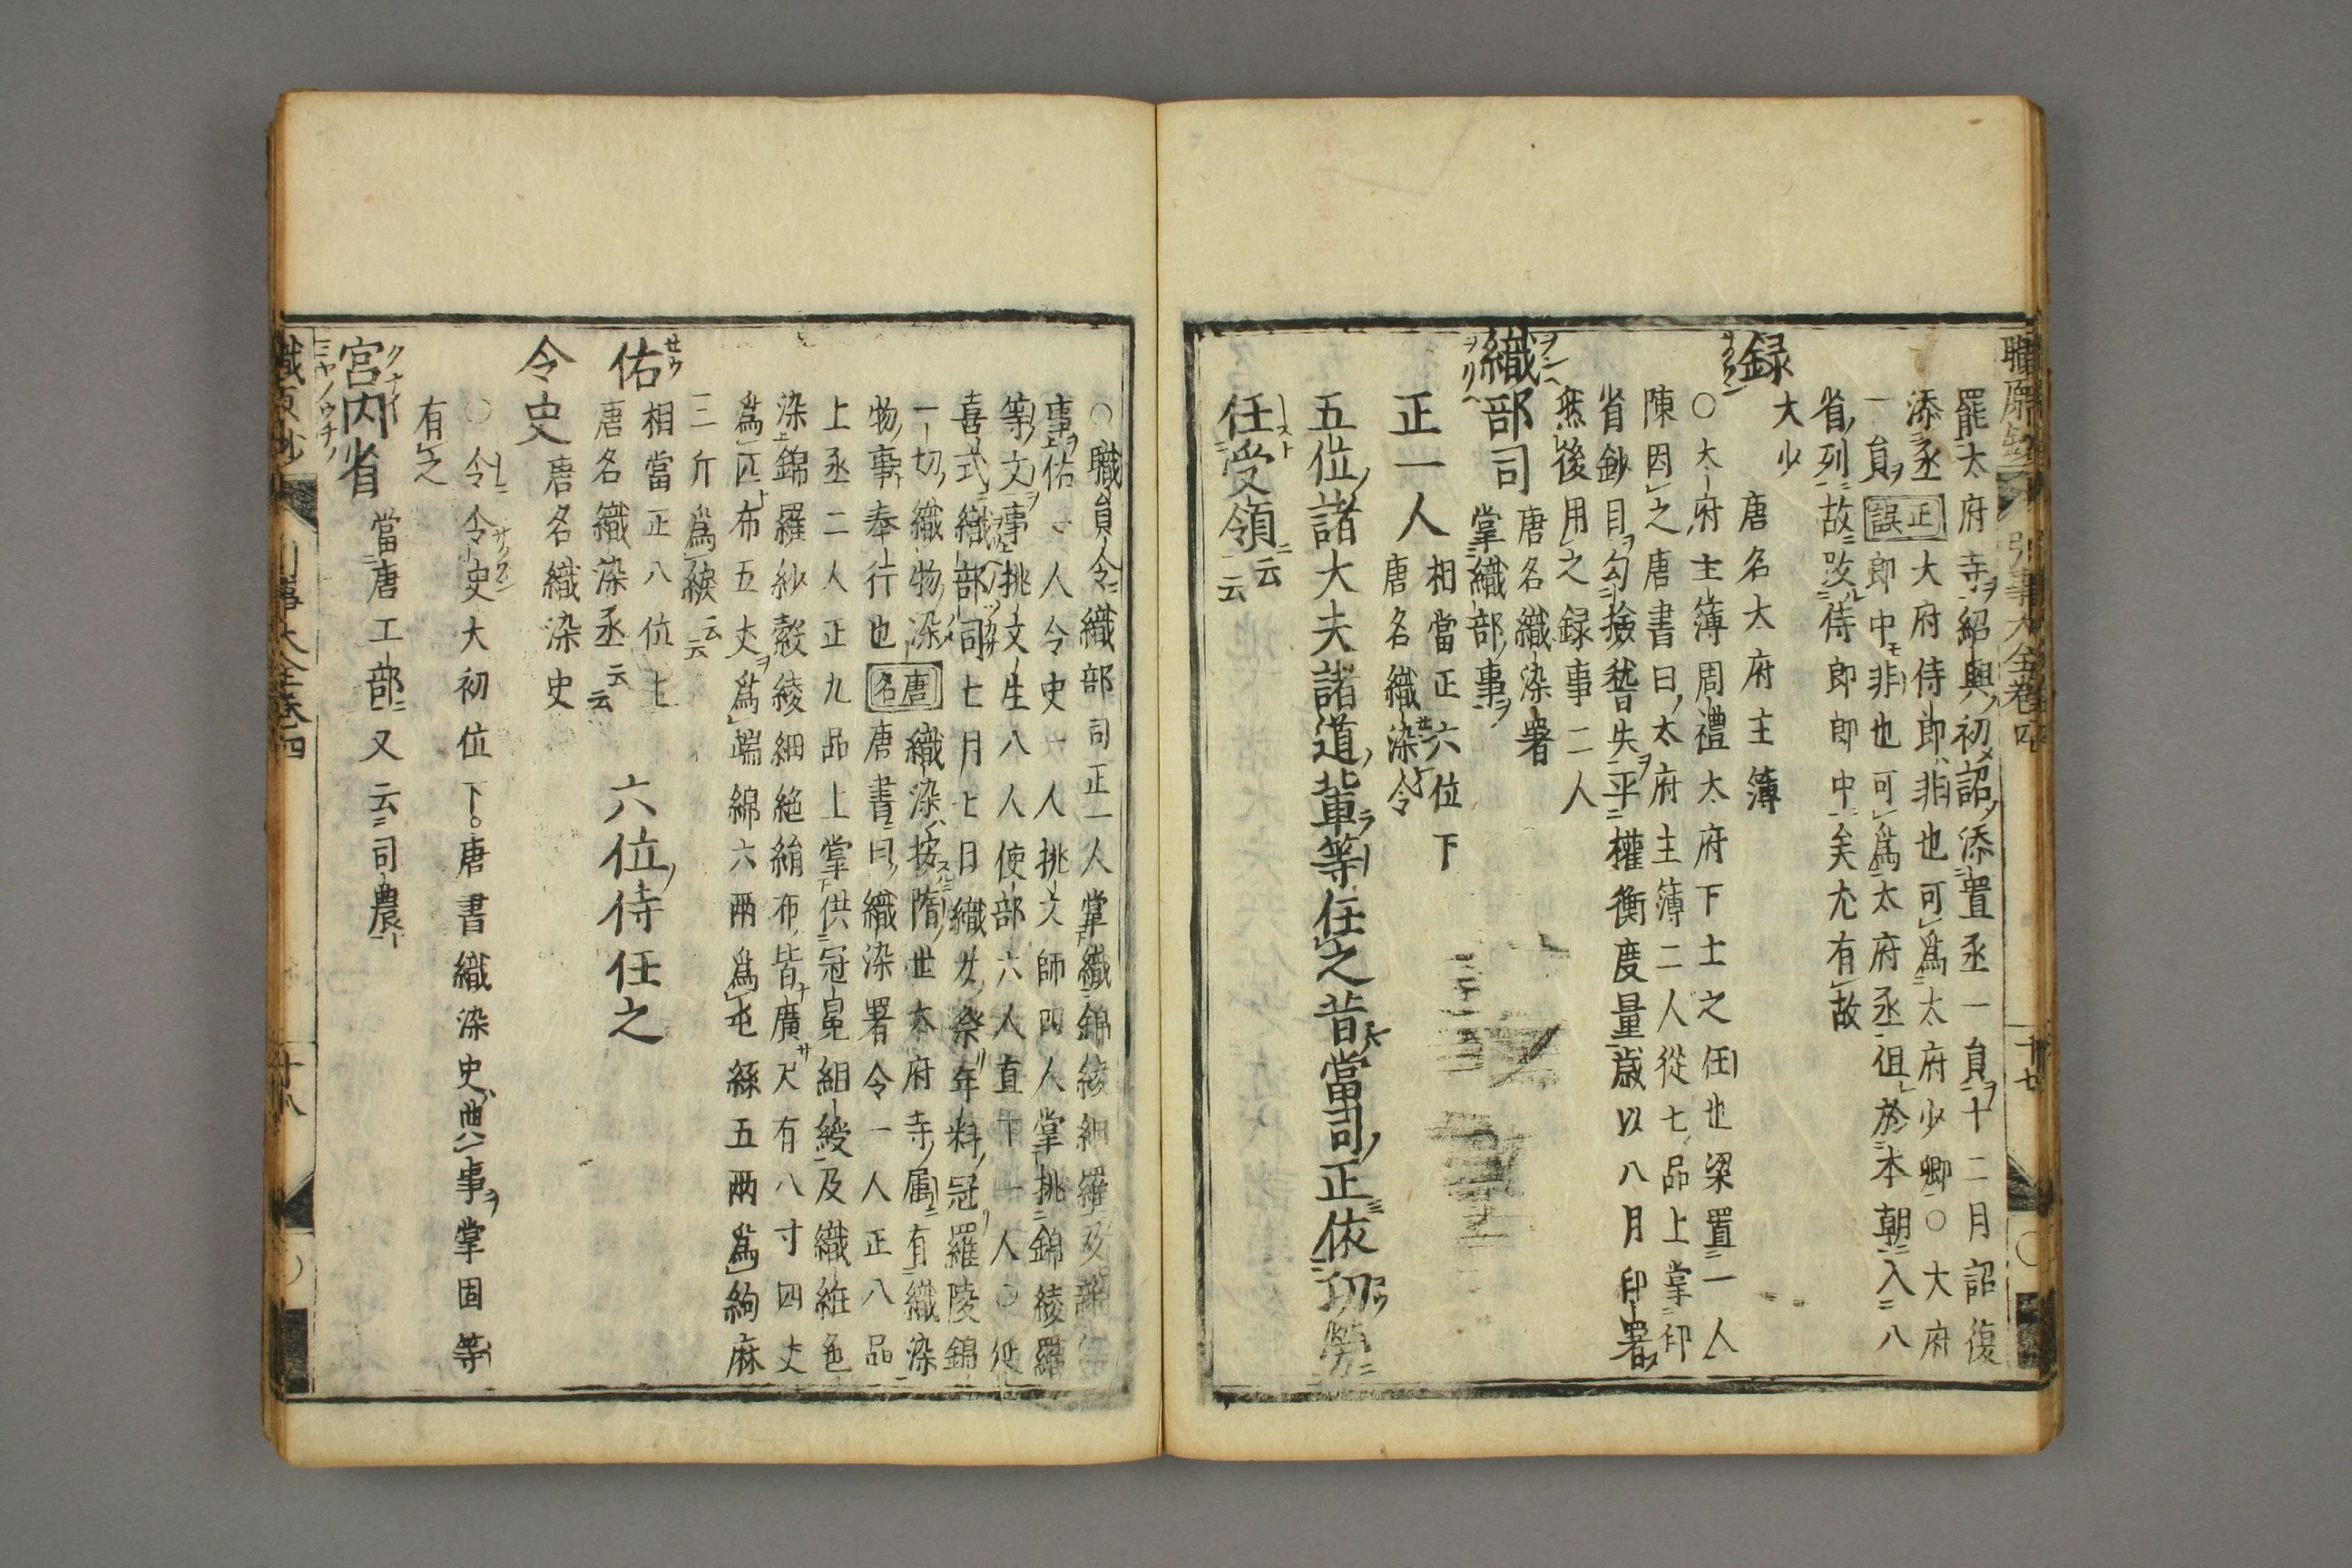 罷太府寺紹興初詔添置丞一員十二月詔復
添丞正誤大府侍郎非也可為太府少卿〇大府
一員郎中非也可為太府丞但於本朝入八
省列故改侍郎郎中矣尤有故
録大少唐名大府主薄
〇太府主簿周禮太府下士之任也梁置一人
陳因之唐書曰太府主簿二人從七品上掌印
省鈔目勾撿稽失平權衡度量歳以八月印署
然後用之録事二人
織部司唐名織染署掌織部事
正一人相當正六位下唐名織染令
五位諸大夫諸道輩等任之昔當司正依功勞
任受領云云
職原鈔
引事大全巻四
十七
〇職員令織部司正一人掌織錦綾紬羅及雜染
事佑一人令史一人挑文師四人掌挑錦綾羅
等文事挑文生八人使部六人直丁一人〇延
喜式織部司七月七日織女祭年料冠羅陵錦
一切織物染唐名織染按隋世太府寺屬有織染
物事奉行也唐書曰織染署令一人正八品
上丞二人正九品上掌供冠冕組綬及織紝色
染錦羅紗縠綾紬絁絹布皆廣尺有八寸四丈
為匹布五丈為端綿六兩為屯絲五兩為絇麻
三斤為綟云云
佑相當正八位七唐名織染丞云云六位侍任之
令史唐名織染史
〇令令史大初位下唐書織染史典事掌固等
有之
宮内省當唐工部又云司農
職原鈔
引事大全巻四
十八